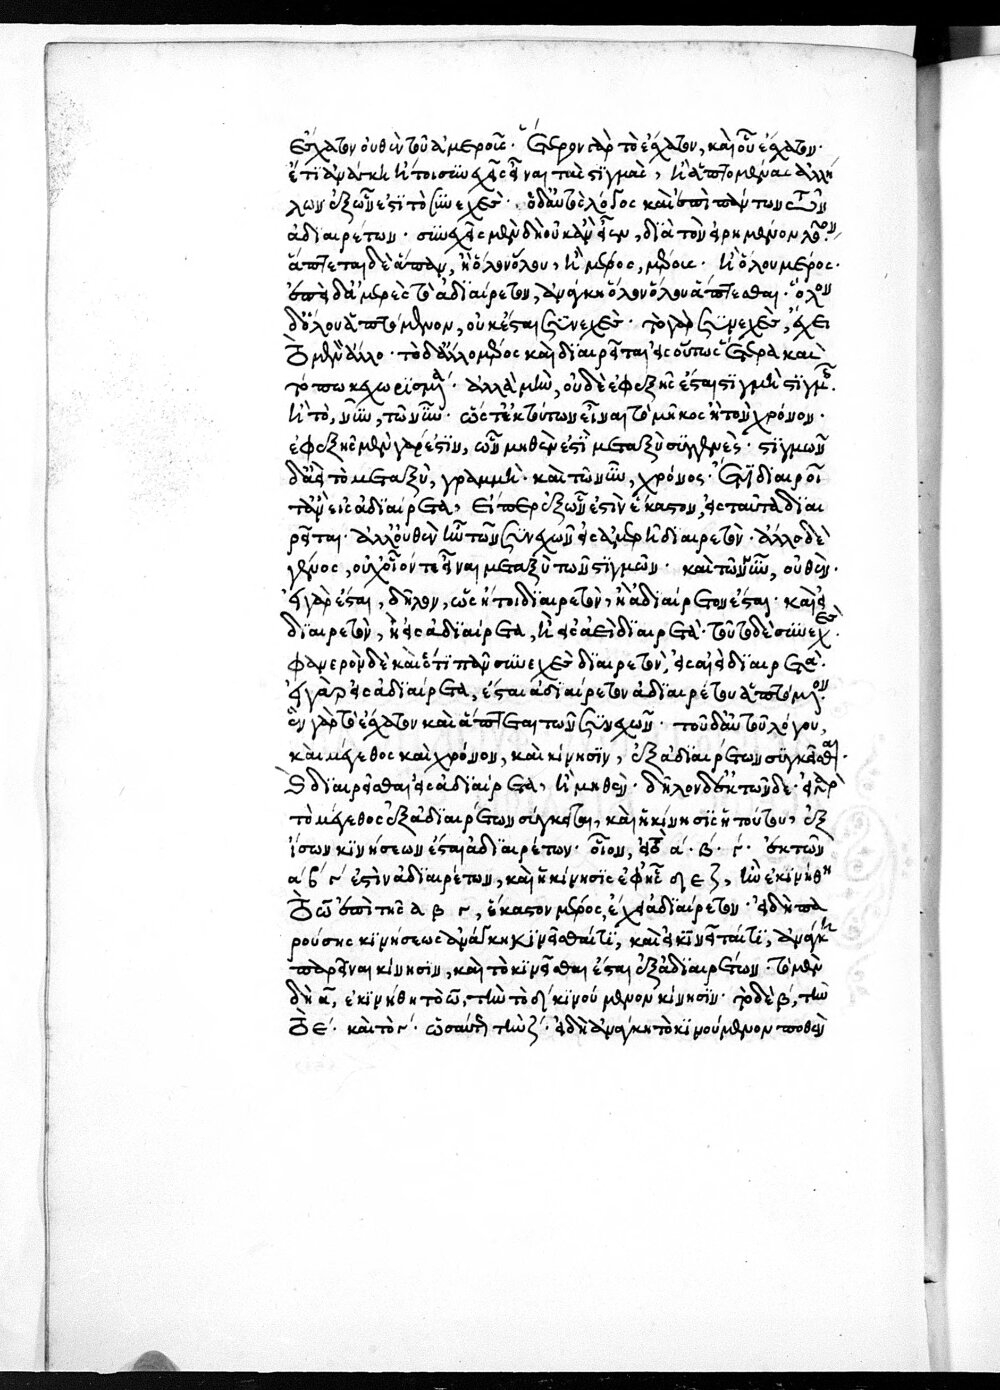 ἔσχατον οὐθὲν τοῦ ἀμεροῦς· ἕτερον γὰρ τὸ ἔσχατον, καὶ οὗ ἔσχατον·
ἔτι ἀνάγκη ἢ τοι συνεχεῖς εἶναι τὰς στιγμὰς, ἢ ἁπτομένας ἀλλή
λων ἐξ ὧν ἐστι τὸ συνεχές· ὁ δ' αὐτὸς λόγος καὶ ἐπὶ πάντων τῶν
ἀδιαιρέτων· συνεχεῖς μὲν δὴ οὐκ ἂν εἶεν, διὰ τὸν εἰρημένον λόγον,
ἅπτεται δὲ ἅπαν, ἢ ὅλον ὅλου, ἢ μέρος, μέρους· ἢ ὅλου μέρος·
ἐπεὶ δ' ἀμερὲς τὸ ἀδιαίρετον, ἀνάγκη ὅλον ὅλου ἅπτεσθαι· ὅλον
δ' ὅλου ἁπτόμενον, οὐκ ἔσται συνεχές· τὸ γὰρ συνεχὲς, ἔχει
τὸ μὲν ἄλλο· τὸ δ' ἄλλο μέρος καὶ διαιρεῖται εἰς οὕτως ἕτερα καὶ
τόπω κεχωρισμένα· ἀλλὰ μὴν, οὐδὲ ἐφεξῆς ἔσται στιγμὴ στιγμῆς·
ἢ τὸ, νῦν, τῶ νῦν· ὥς τ' ἐκ τούτων εἶναι τὸ μῆκος ἢ τὸν χρόνον·
ἐφεξῆς μὲν γάρ ἐστιν, ὧν μηθὲν ἐστὶ μεταξὺ συγγενές· στιγμῶν
δ' ἀεὶ τὸ μεταξὺ, γραμμὴ· καὶ τῶν νῦν, χρόνος· ἔτι διαιροῖ
τ' ἂν εἰς ἀδιαίρετα, εἴπερ ἐξ ὧν ἐστὶν ἕκαστον, εἰς ταῦτα διαι
ρεῖται· ἀλλ' οὐθὲν ἦν τῶν συνεχῶν εἰς ἀμερῆ διαιρετόν· ἄλλο δὲ
γένος, οὐχ οἷόν τε εἶναι μεταξὺ τῶν στιγμῶν· καὶ τῶν νῦν, οὐθέν·
εἰ γὰρ ἔσται, δῆλον, ὡς ἤτοι διαιρετὸν, ἢ ἀδιαίρετον ἔσται· καὶ εἰ
διαιρετὸν, ἢ εἰς ἀδιαίρετα, ἢ εἰς ἀεὶ διαιρετά· τοῦτο δὲ συνεχές·
φανερὸν δὲ καὶ ὅτι πᾶν συνεχὲς διαιρετὸν, εἰς αἰεὶ διαιρετά·
εἰ γὰρ εἰς ἀδιαίρετα, ἔσται ἀδιαίρετον ἀδιαιρέτου ἁπτόμενον·
ἓν γὰρ τὸ ἔσχατον καὶ ἅπτεται τῶν συνεχῶν· τοῦ δ' αὐτοῦ λόγου,
καὶ μέγεθος καὶ χρόνον, καὶ κίνησιν, ἐξ ἀδιαιρέτων συγκεῖσθαι·
καὶ διαιρεῖσθαι εἰς ἀδιαίρετα, ἢ μηθέν· δῆλον δ' ἐκ τῶν δε· εἰ γὰρ
τὸ μέγεθος ἐξ ἀδιαιρέτων σύγκειται, καὶ ἡ κίνησις ἡ τούτου, ἐξ
ἴσων κινήσεων ἔσται ἀδιαιρέτων· οἷον, εἰ τὸ α· β· γ· ἐκ τῶν
α β γ ἐστὶν ἀδιαιρέτων, καὶ ἡ κίνησις ἐφ' ἧς δ ε ζ, ἣν ἐκινήθη
τὸ ω ἐπὶ τῆς α β γ, ἕκαστον μέρος, ἔχει ἀδιαίρετον· εἰ δὴ πα
ρούσης κινήσεως ἀνάγκη κινεῖσθαί τι, καὶ εἰ κινεῖταί τι, ἀνάγκη
παρεῖναι κίνησιν, καὶ τὸ κινεῖσθαι ἔσται ἐξ ἀδιαιρέτων· τὸ μὲν
δὴ α, ἐκινήθη τὸ ω, τὴν τὸ δ κινούμενον κίνησιν· τὸ δὲ β, τὴν
τὸ ε· καὶ τὸ γ· ὡσαύτως τὴν ζ· εἰ δὴ ἀνάγκη τὸ κινούμενον ποθὲν